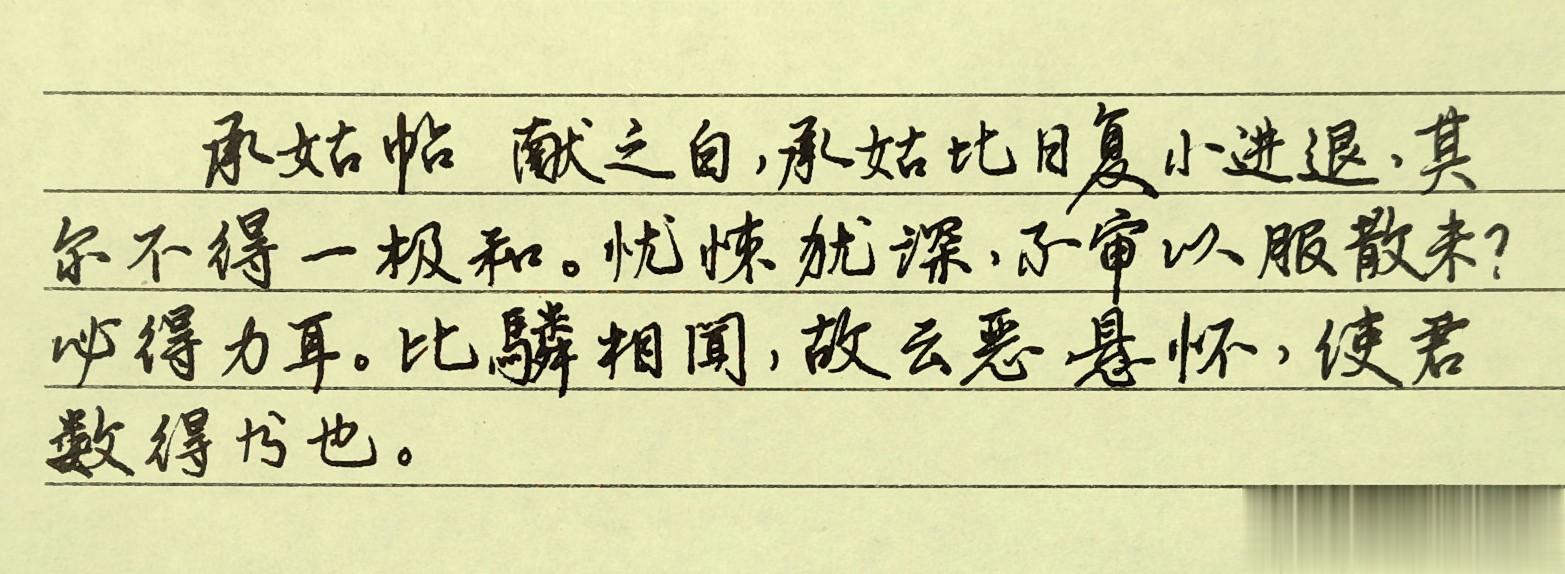 承姑帖 献之白,承姑比日复小进退,其
尔不得一极和。忧悚犹深,不审以服散未?
必得力耳。比驎相闻,故云恶悬怀,使君
数得书也。